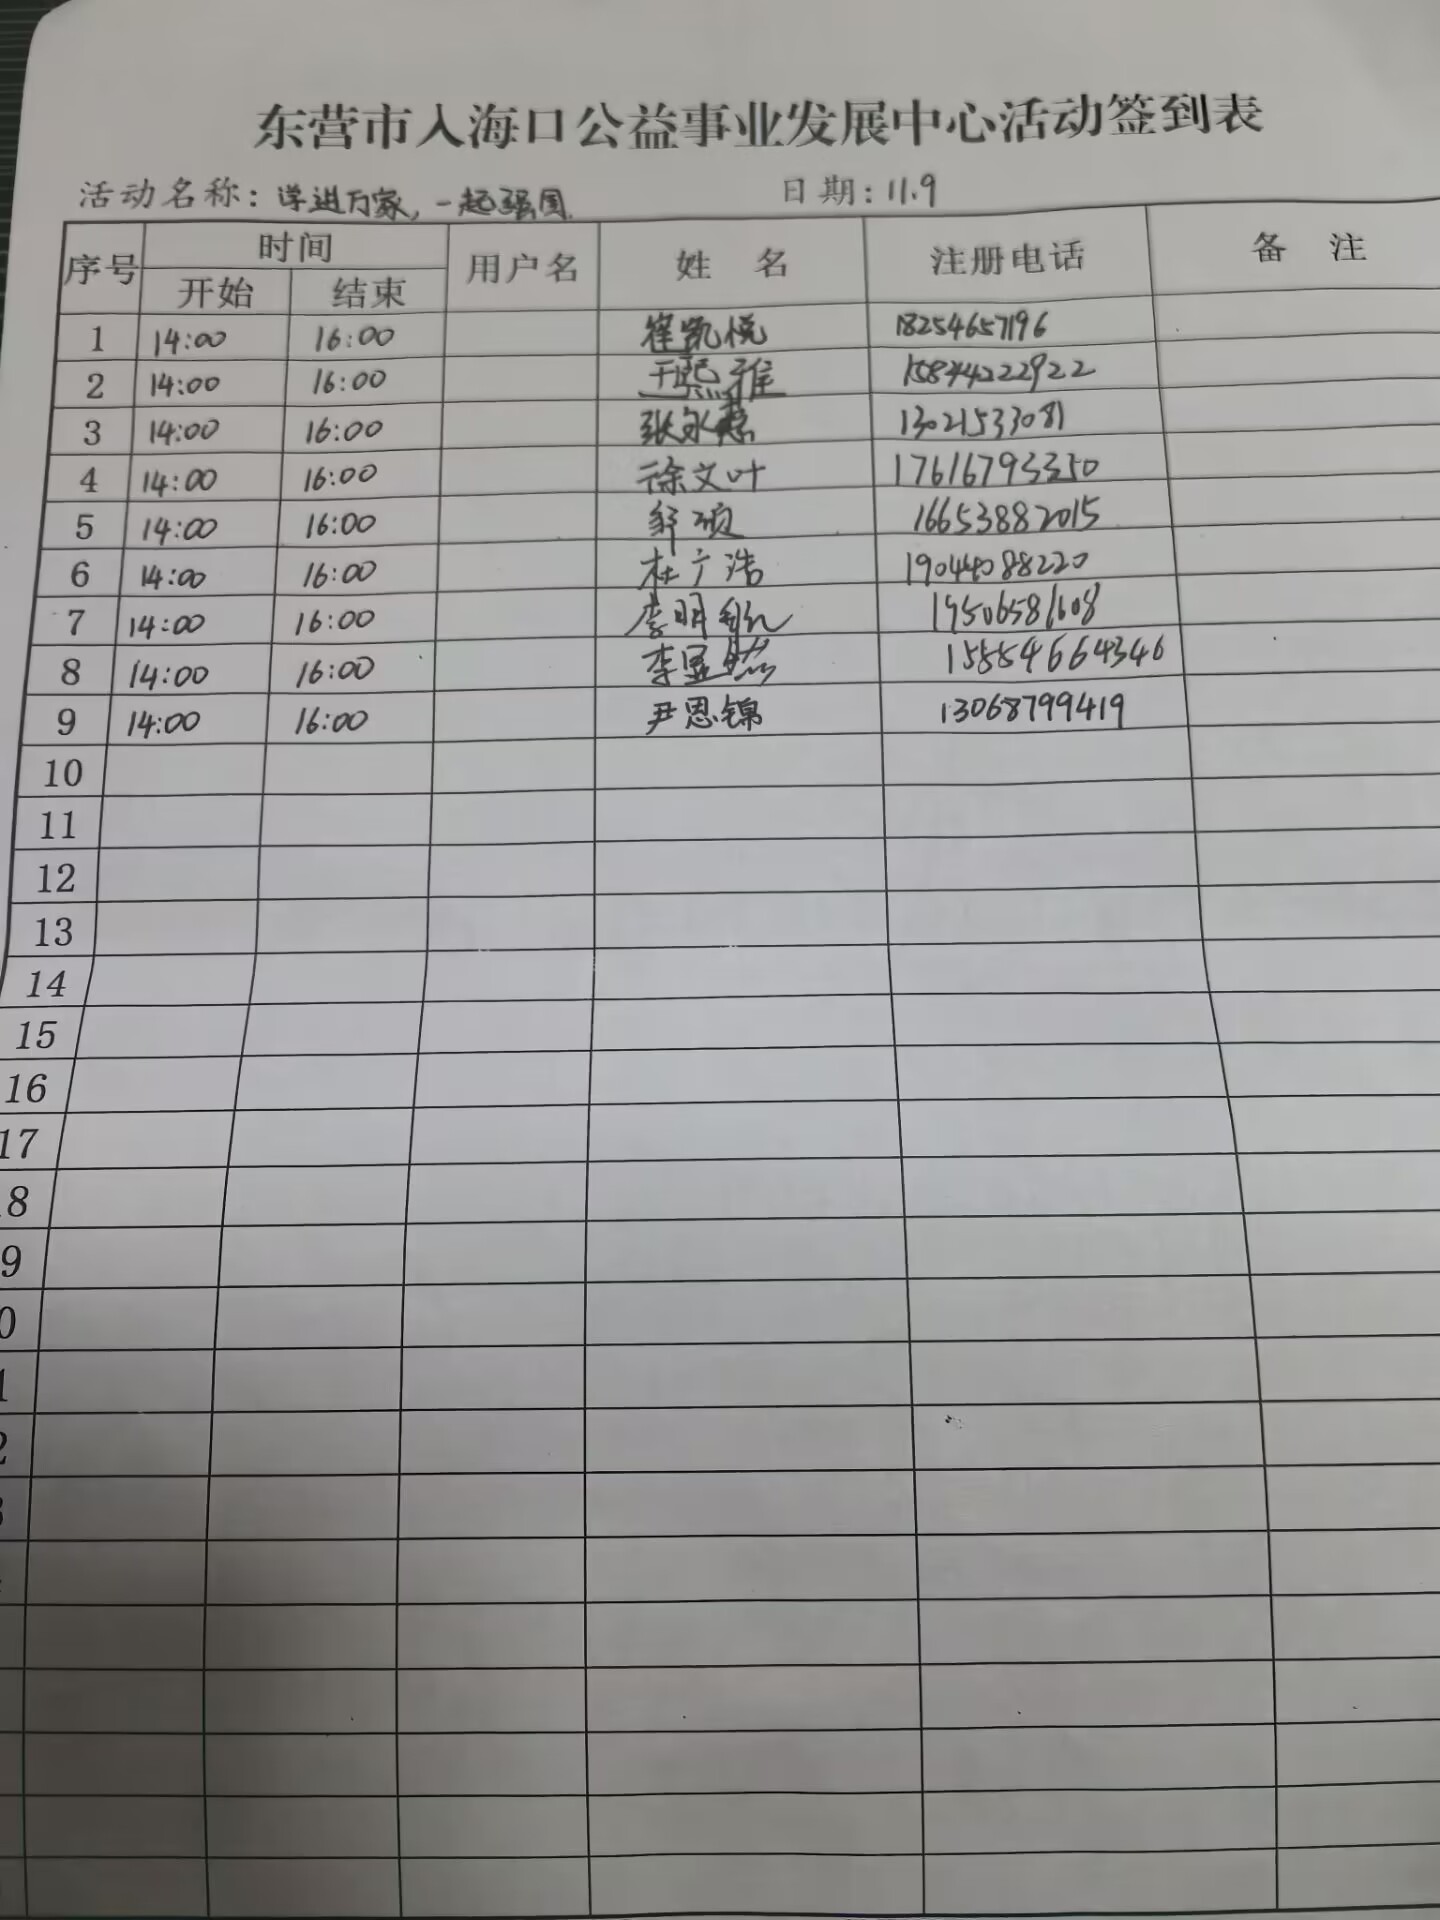 东营市入海口公益事业发展中心活动签到表
活动名称：学进万家，一起强国. 日期：11.9
序号 时间 用户名 姓 名 注册电话 备 注
开始 结束
1 14:00 16:00 崔凯悦 18254657196
2 14:00 16:00 王熙雅 15844222922
3 14:00 16:00 张永慧 13021533081
4 14:00 16:00 徐文叶 17616793350
5 14:00 16:00 硕 16653882015
6 14:00 16:00 杜广浩 19044088220
7 14:00 16:00 李明 19506581608
8 14:00 16:00 李显然 155554664346
9 14:00 16:00 尹恩锦 13068799419
10
11
12
13
14
15
16
17
8
9
0
1
2
3